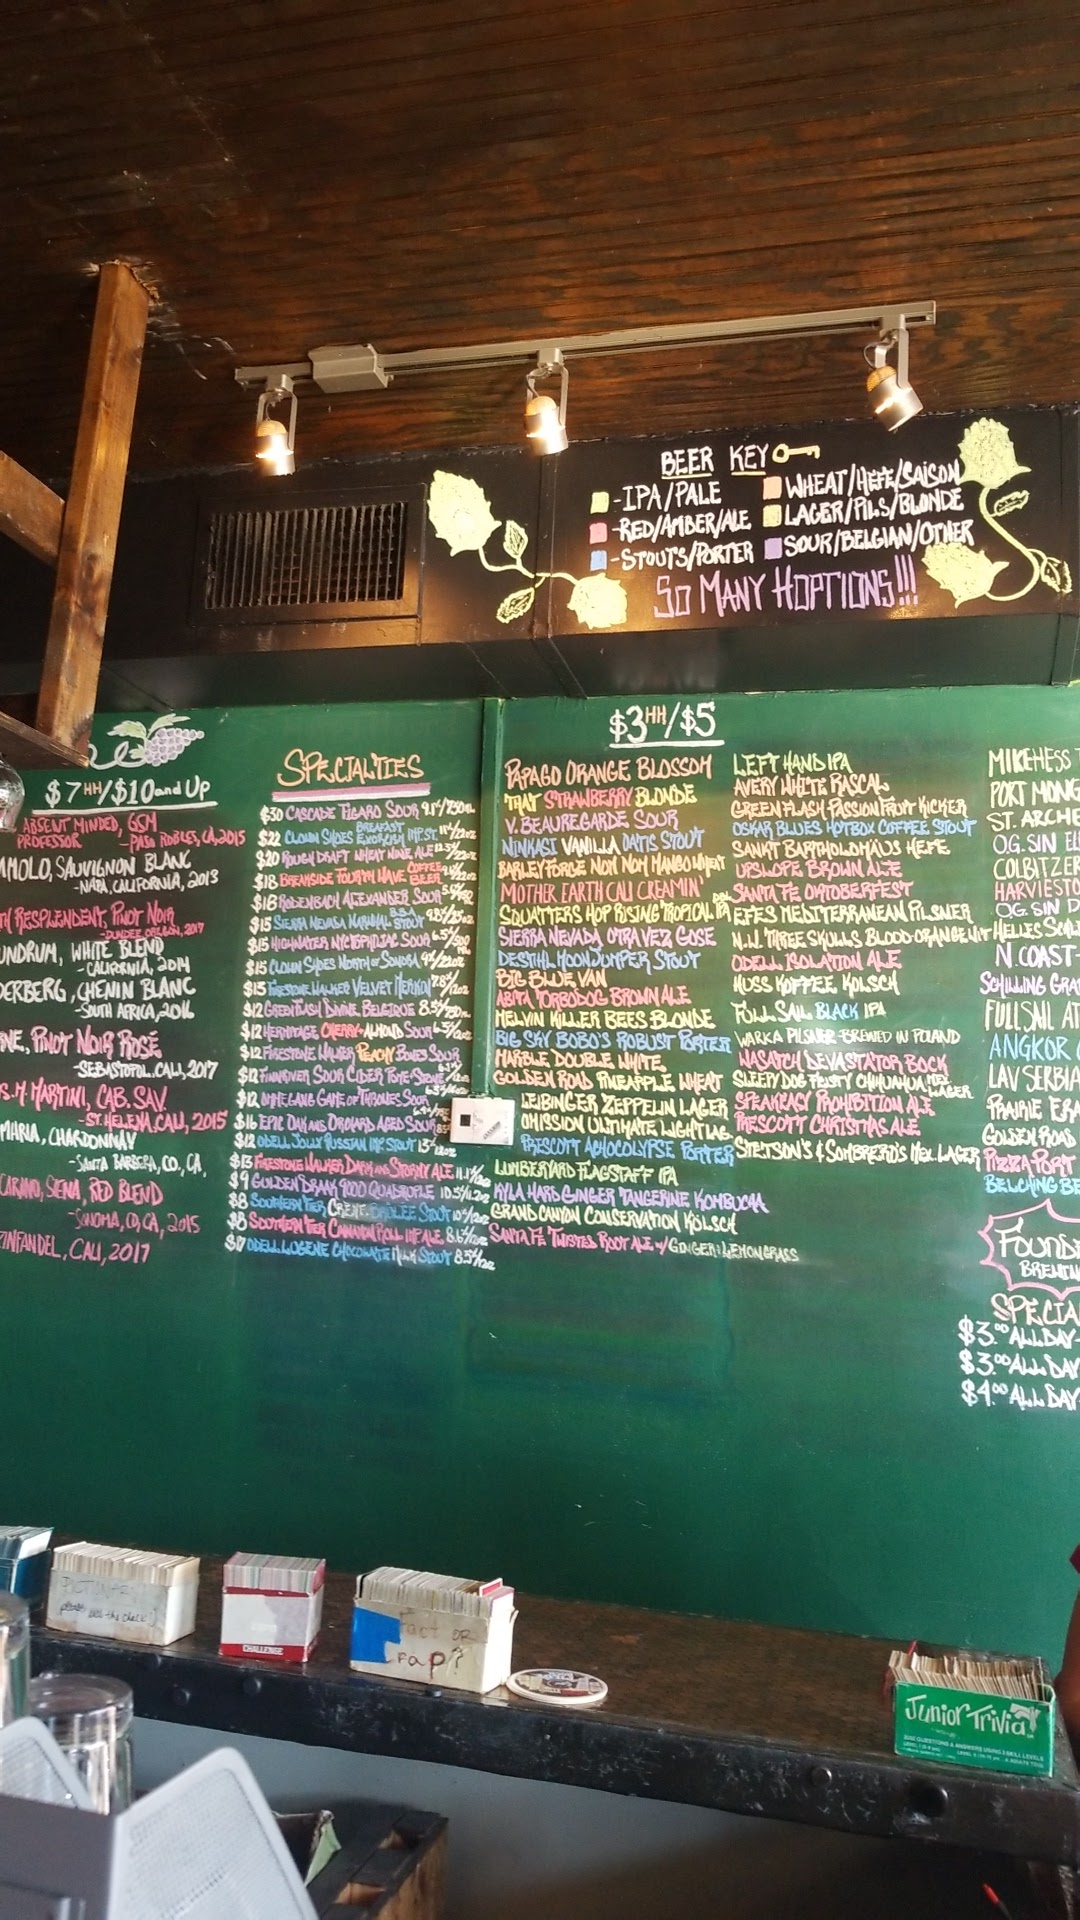 BEER KEY
-IPA/PALE
-RED/AMBER/ALE
-STOUTS/PORTER
WHEAT/HEFE/SAISON
LAGER/PILS/BLONDE
SOUR/BELGIAN/OTHER
SO MANY HOPTIONS!!!
$7HH/$10 and Up
ABSENT MINDED, GSM
PROFESSOR - PASO ROBLES, CA, 2015
SAUVIGNON BLANC
-NAPA, CALIFORNIA, 2013
RESPLENDENT, PINOT NOIR
-DUNDEE, OREGON, 2017
UNDRUM, WHITE BLEND
-CALIFORNIA, 2014
DERBERG, CHENIN BLANC
-SOUTH AFRICA, 2016
NE, PINOT NOIR ROSÉ
-SEBASTOPOL, CALI, 2017
S.M MARTINI, CAB. SAV.
-ST. HELENA, CALI, 2015
MARIA, CHARDONNAY
-SANTA BARBERA, CO., CA,
CARANO, SIENA, RED BLEND
-SONOMA, CO, CA, 2015
ZINFANDEL, CALI, 2017
SPECIALTIES
$30 CASCADE FIGARO SOUR
$22 CLOWN SHOES BREAKFAST EXORCISM
$20 ROUGH DRAFT WHEAT WINE ALE
$18 BREAKSIDE FOURTH WAVE COFFEE BEER
$16 RODENBACH ALEXANDER SOUR
$15 SIERRA NEVADA NARWHAL B.B.A. STOUT
$15 HIGHWATER
$15 CLOWN SHOES NORTH OF SONORA
$15 FIRESTONE WALKER VELVET MERKIN
$12 GREEN FLASH DIVINE BELGIQUE
$12 HERMITAGE CHERRY-ALMOND SOUR
$12 FIRESTONE WALKER PEACHY BONES SOUR
$12 FINNRIVER SOUR CIDER
$12 OMMEGANG GAME OF THRONES SOUR
$16 EPIC OAK AND ORCHARD AGED SOUR
$12 ODELL JOLLY RUSSIAN IMP. STOUT
$13 FIRESTONE WALKER DARK AND STORMY ALE
$9 GULDEN DRAAK 9000 QUADRUPLE
$8 SOUTHERN TIER CREME BRULEE STOUT
$8 SOUTHERN TIER CINNAMON ROLL IMP. ALE
ODELL LUGENE CHOCOLATE MILK STOUT
$3HH/$5
PAPAGO ORANGE BLOSSOM
THAT STRAWBERRY BLONDE
V. BEAUREGARDE SOUR
NINKASI VANILLA OATIS STOUT
BARLEY FORGE NOM NOM MANGO WHEAT
MOTHER EARTH CALI CREAMIN'
SQUATTERS HOP RISING TROPICAL IPA
SIERRA NEVADA OTRA VEZ GOSE
DESTIHL MOON JUMPER STOUT
BIG BLUE VAN
ABITA TURBODOG BROWN ALE
MELVIN KILLER BEES BLONDE
BIG SKY BOBO'S ROBUST PORTER
MARBLE DOUBLE WHITE
GOLDEN ROAD PINEAPPLE WHEAT
LEIBINGER ZEPPELIN LAGER
OMISSION ULTIMATE LIGHT LAG
PRESCOTT ACHOCOLYPSE PORTER
LUMBERYARD FLAGSTAFF IPA
KYLA HARD GINGER TANGERINE KOMBUCHA
GRAND CANYON CONSERVATION KÖLSCH
SANTA FE TWISTED ROOT ALE w/ GINGER & LEMONGRASS
LEFT HAND IPA
AVERY WHITE RASCAL
GREEN FLASH PASSION FRUIT KICKER
OSKAR BLUES HOTBOX COFFEE STOUT
SANKT BARTHOLOMÄUS HEFE
UPSLOPE BROWN ALE
SANTA FE OKTOBERFEST
EFES MEDITERRANEAN PILSNER
N.W. THREE SKULLS BLOOD ORANGE WIT
ODELL ISOLATION ALE
HUSS KOFFEE KOLSCH
FULL SAIL BLACK IPA
WARKA PILSNER-BREWED IN POLAND
WASATCH DEVASTATOR BOCK
SLEEPY DOG FEISTY CHIHUAHUA MEX. LAGER
SPEAKEASY PROHIBITION ALE
PRESCOTT CHRISTMAS ALE
STETSON'S & SOMBRERO'S MEX. LAGER
MIKE HESS
PORT MONG
ST. ARCHE
O.G. SIN EL
COLBITZER
HARVIESTO
O.G. SIN D
HELLES SC
N. COAST-
SCHILLING GRA
FULL SAIL AT
ANGKOR
LAV SERBIA
PRAIRIE ERA
GOLDEN ROAD
PIZZA PORT
BELCHING BE
FOUND
BREWIN
SPECIA
$3.00 ALL DAY-
$3.00 ALL DAY
$4.00 ALL DAY-
PICTIONARY
CHALLENGE
Fact or
Crap?
Junior Trivia